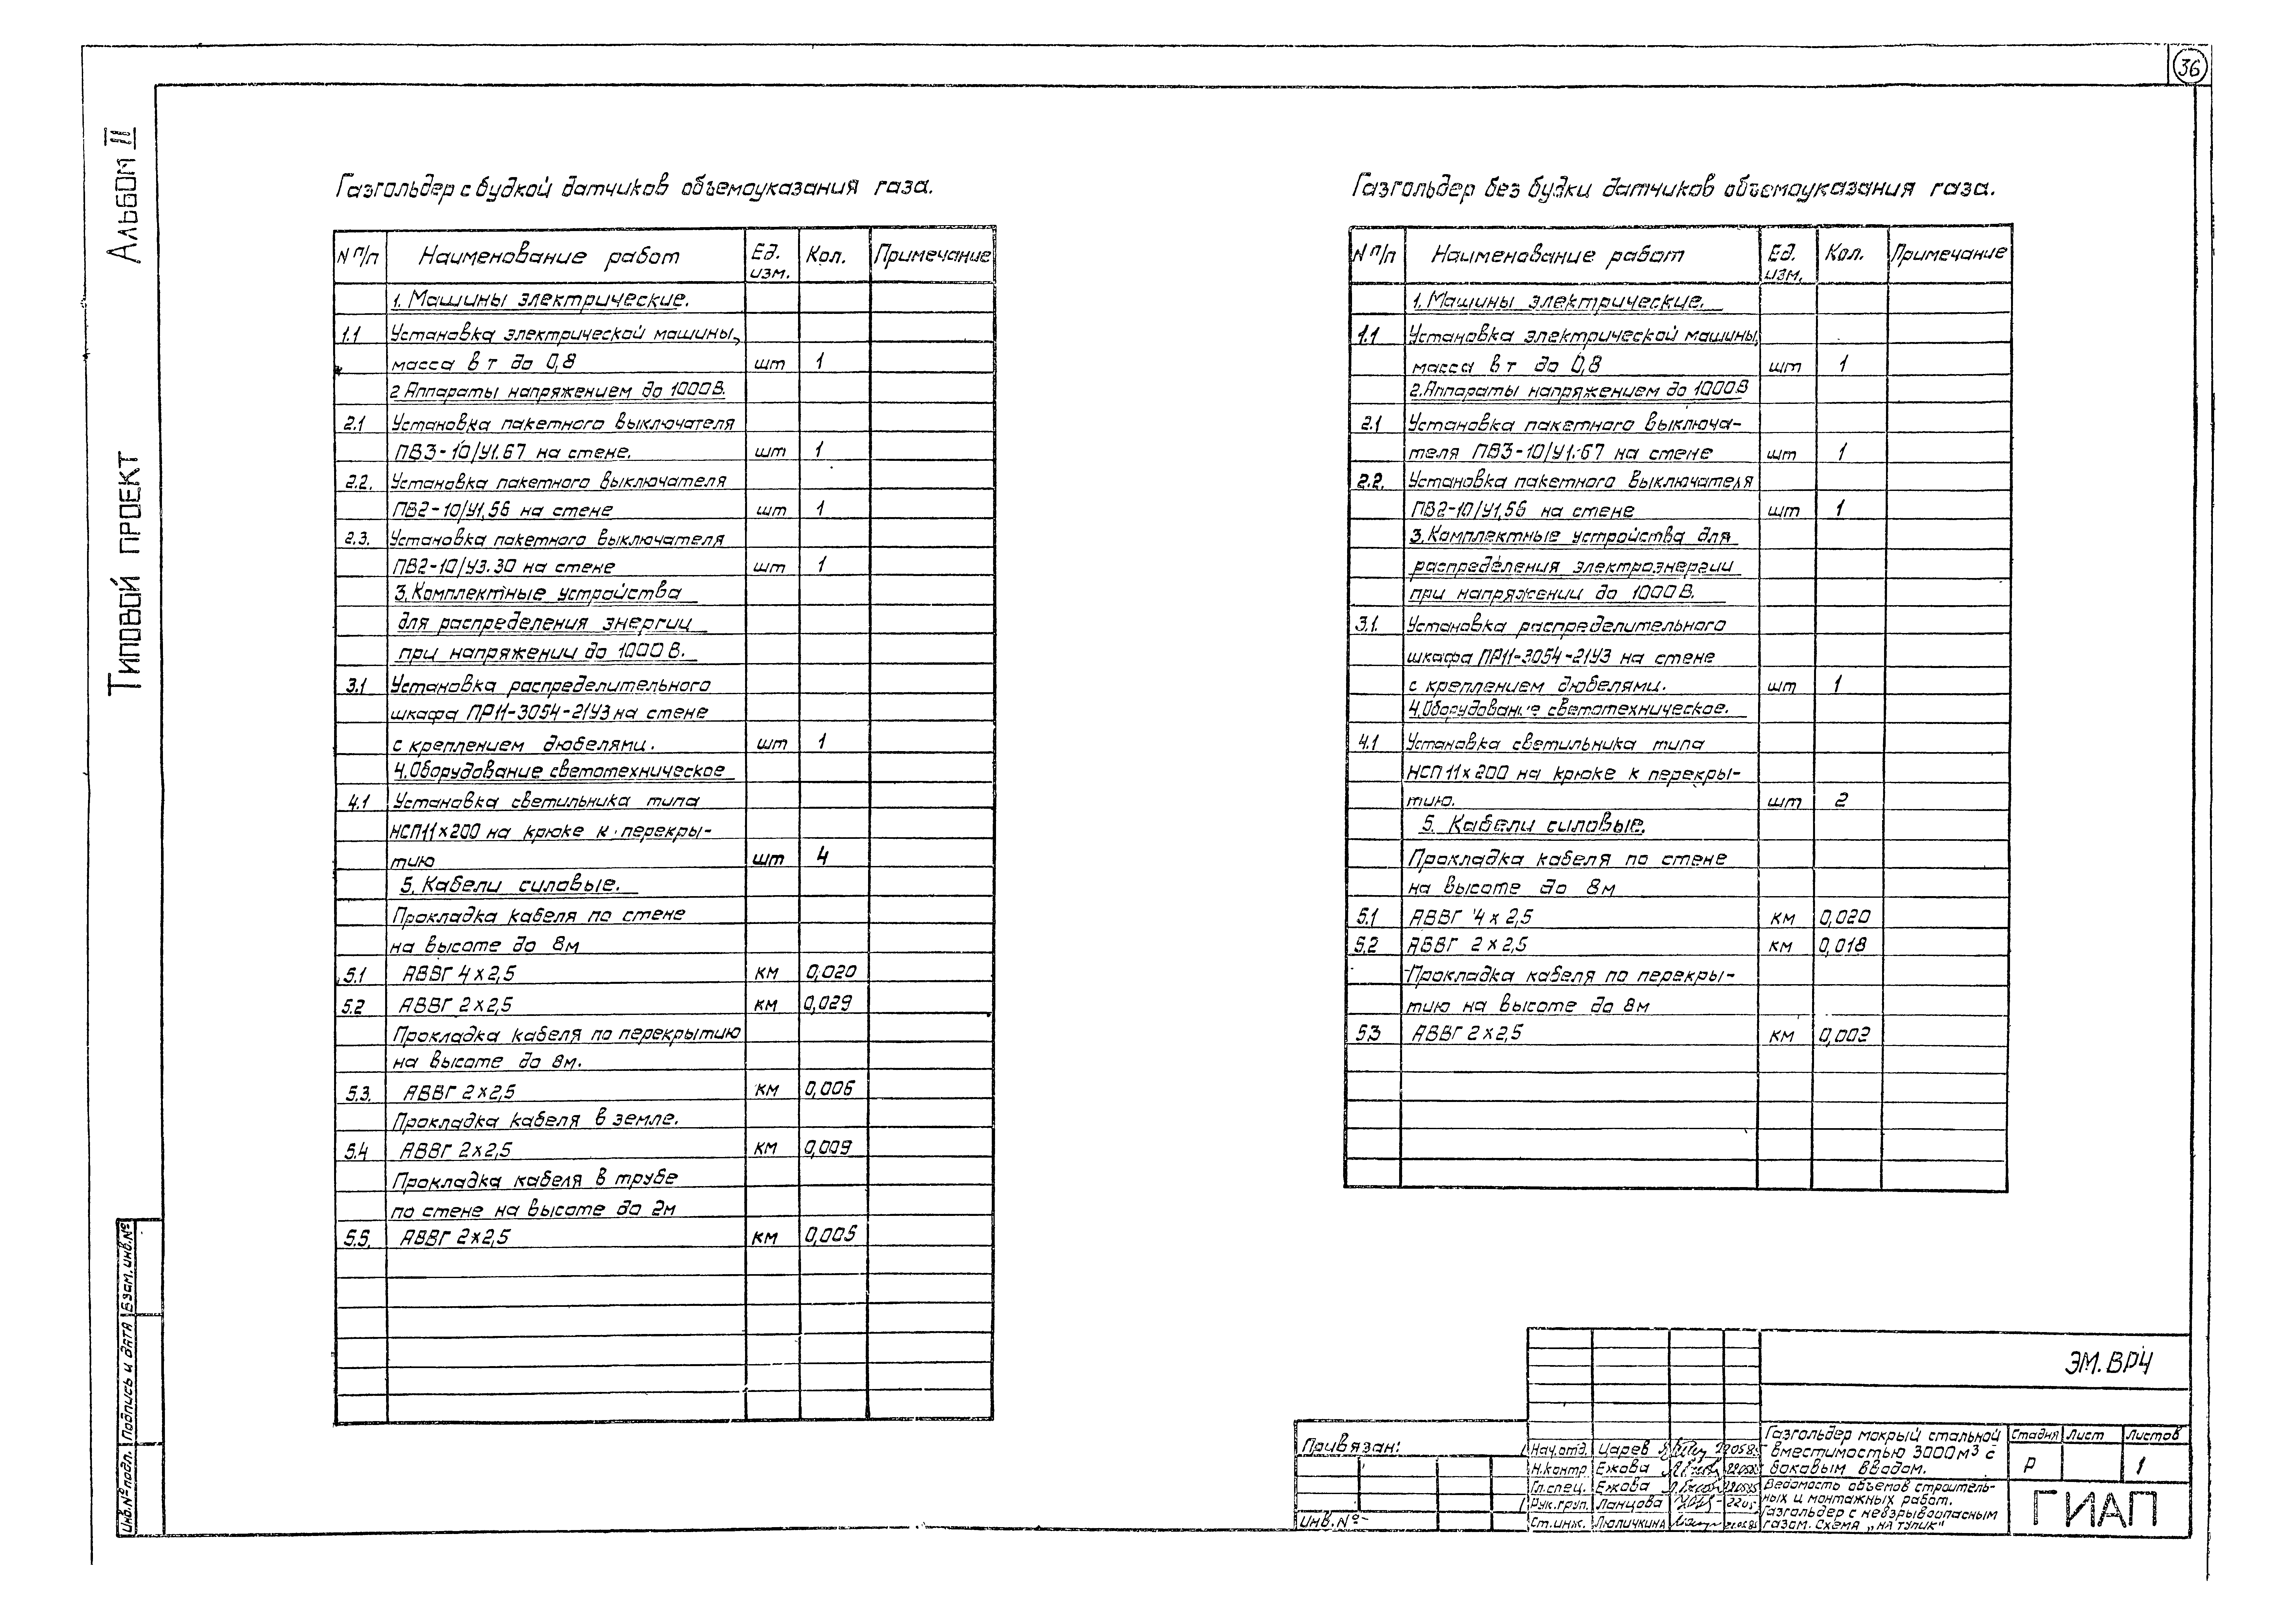 36
Альбом II
Типовой проект
Газгольдер с будкой датчиков объемоуказания газа.
N п/п Наименование работ Ед. изм. Кол. Примечание
1. Машины электрические.
1.1 Установка электрической машины,
масса в т до 0,8 шт 1
2 Аппараты напряжением до 1000В.
2.1 Установка пакетного выключателя
ПВ3-10/У1.67 на стене. шт 1
2.2. Установка пакетного выключателя
ПВ2-10/У1,56 на стене шт 1
2.3. Установка пакетного выключателя
ПВ2-10/У3.30 на стене шт 1
3. Комплектные устройства
для распределения энергии
при напряжении до 1000 В.
3.1 Установка распределительного
шкафа ПР11-3054-21У3 на стене
с креплением дюбелями. шт 1
4. Оборудование светотехническое
4.1 Установка светильника типа
НСП11х200 на крюке к перекры-
тию шт 4
5. Кабели силовые.
Прокладка кабеля по стене
на высоте до 8м
5.1 АВВГ 4х2,5 км 0,020
5.2 АВВГ 2х2,5 км 0,029
Прокладка кабеля по перекрытию
на высоте до 8м.
5.3. АВВГ 2х2,5 км 0,006
Прокладка кабеля в земле.
5.4 АВВГ 2х2,5 км 0,009
Прокладка кабеля в трубе
по стене на высоте до 2м
5.5. АВВГ 2х2,5 км 0,005
Газгольдер без будки датчиков объемоуказания газа.
N п/п Наименование работ Ед. изм. Кол. Примечание
1. Машины электрические.
1.1 Установка электрической машины,
масса в т до 0,8 шт 1
2. Аппараты напряжением до 1000В
2.1 Установка пакетного выключа-
теля ПВ3-10/У1.67 на стене шт 1
2.2. Установка пакетного выключателя
ПВ2-10/У1,56 на стене шт 1
3. Комплектные устройства для
распределения электроэнергии
при напряжении до 1000В.
3.1. Установка распределительного
шкафа ПР11-3054-21У3 на стене
с креплением дюбелями. шт 1
4. Оборудование светотехническое.
4.1 Установка светильника типа
НСП 11х200 на крюке к перекры-
тию. шт 2
5. Кабели силовые.
Прокладка кабеля по стене
на высоте до 8м
5.1 АВВГ 4х2,5 км 0,020
5.2 АВВГ 2х2,5 км 0,018
Прокладка кабеля по перекры-
тию на высоте до 8м
5.3 АВВГ 2х2,5 км 0,002
Инв.№подл. Подпись и дата Взам.инв.№
ЭМ.ВР4
Привязан:
Инв.№
Нач.отд. Царев 22058
Н.контр Ежова
Гл.спец. Ежова
Рук.груп. Ланцова 2205
Ст.инж. Люличкина
Газгольдер мокрый стальной
вместимостью 3000м³ с
боковым вводом.
Ведомость объемов строитель-
ных и монтажных работ.
Газгольдер с невзрывоопасным
газом. Схема „на тупик"
Стадия Лист Листов
Р 1
ГИАП